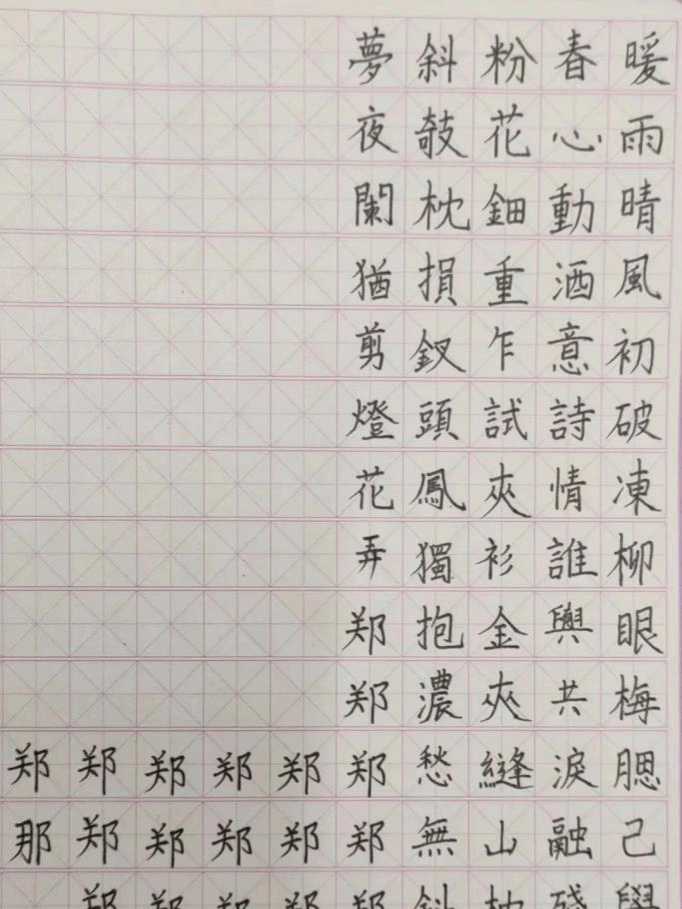 暖雨晴風初破凍柳眼梅腮己
春心動酒意詩情誰與共淚融
粉花鈿重乍試夾衫金夾縫山枕
斜攲枕損釵頭鳳獨抱濃愁無斜
夢夜闌猶剪燈花弄郑郑郑郑郑
郑郑郑
郑郑郑
郑郑郑
郑郑郑
郑那